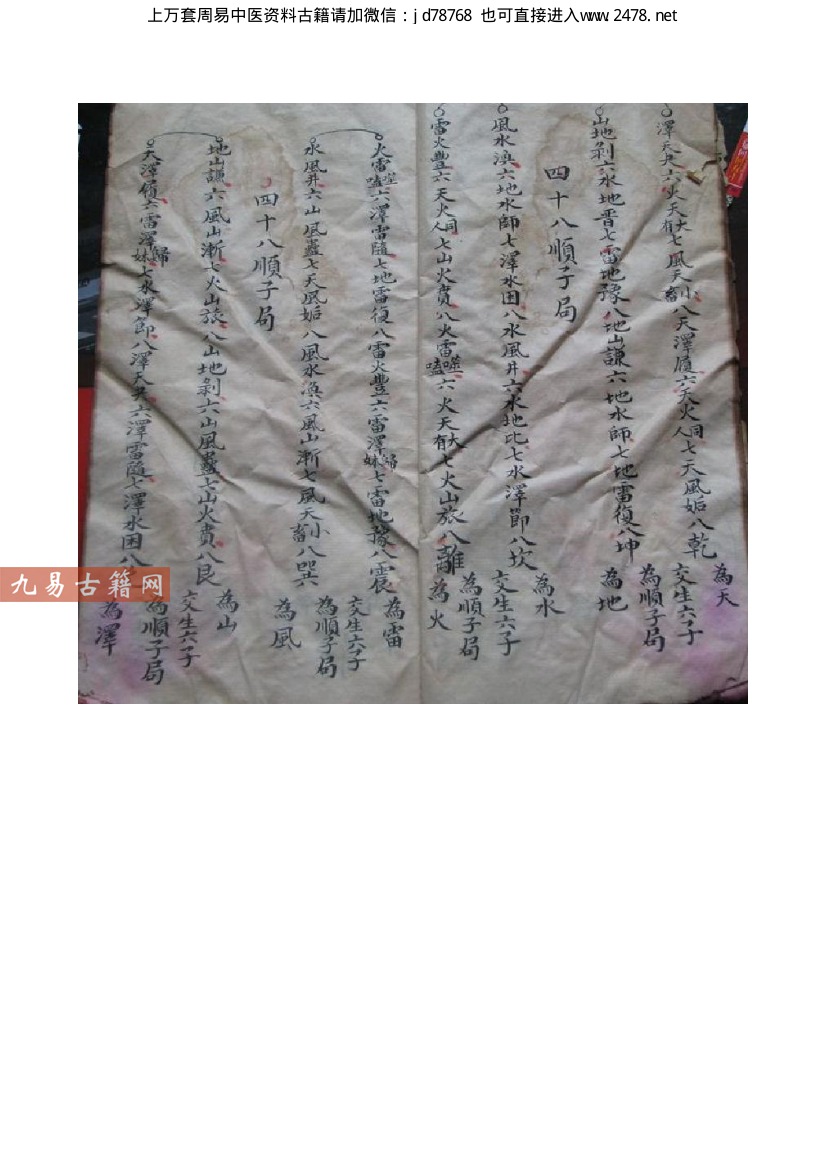 上万套周易中医资料古籍请加微信：jd78768 也可直接进入www.2478.net
澤天夬六火天大有七風天小畜八天澤履六天火同人七天風姤八乾
為天
交生六子
為順子局
山地剝六水地晋七雷地豫八地山謙六地水師七地雷復八坤
為地
四十八順子局
風水渙六地水師七澤水困八水風井六水地比七水澤節八坎
為水
交生六子
為順子局
雷火豐六天火同人七山火賁八火雷噬嗑六火天大有七火山旅八離
為火
火雷噬嗑六澤雷隨七地雷復八雷火豐六雷澤歸妹七雷地豫八震
為雷
交生六子
為順子局
水風井六山風蠱七天風姤八風水渙六風山漸七風天小畜八巽六
為風
四十八順子局
地山謙六風山漸七火山旅八山地剝六山風蠱七山火賁八艮
為山
交生六子
為順子局
天澤履六雷澤歸妹七水澤節八澤天夬六澤雷隨七澤水困八
為澤
九易古籍网